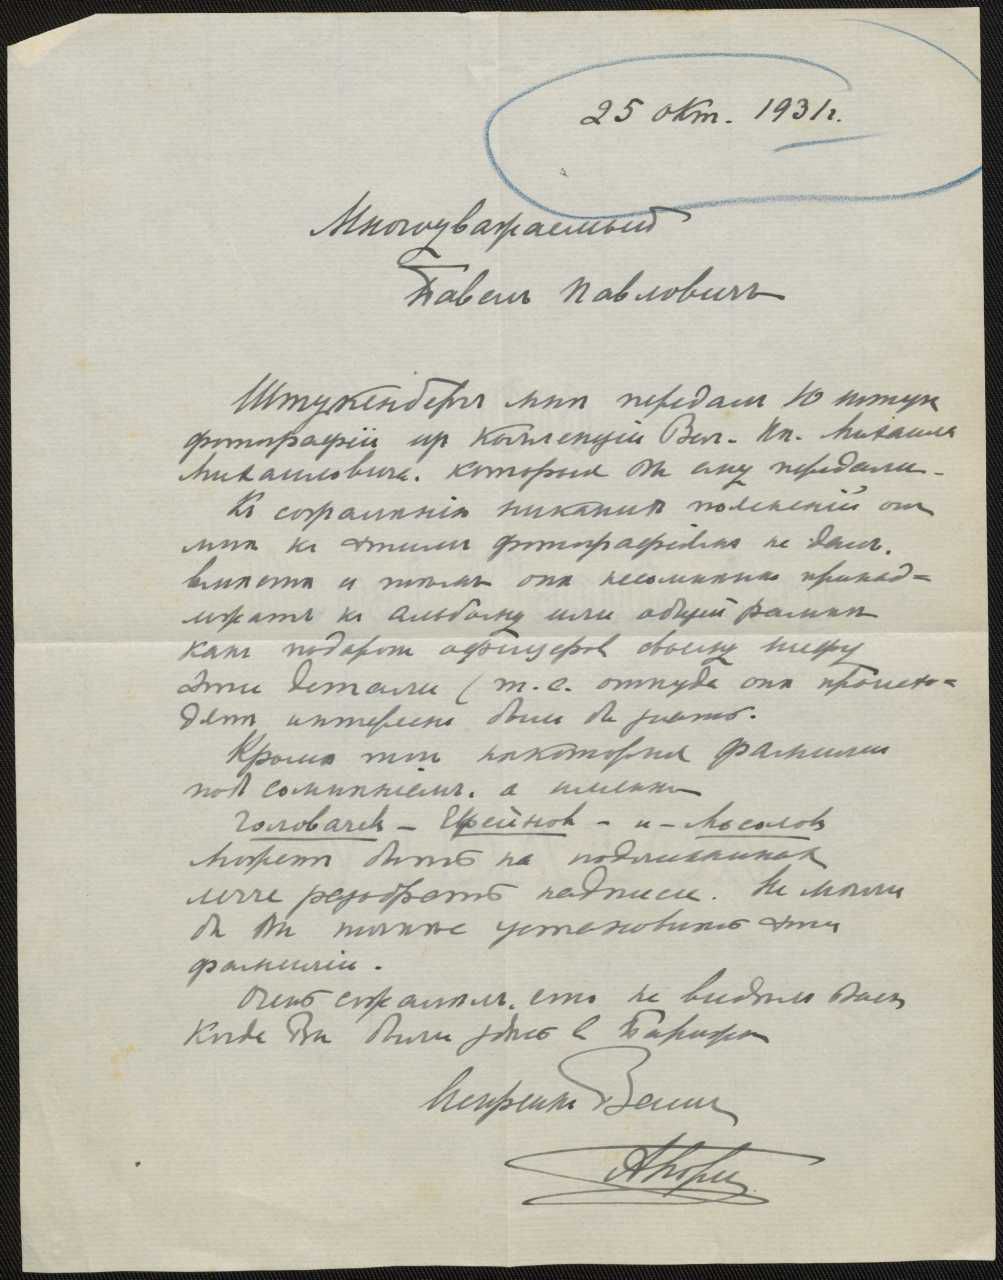 25 окт. 1931 г.
Многоуважаемый
Павелъ Павловичъ
Штукенбергъ мнѣ передалъ 10 штукъ
фотографій из коллекціи Вел. Кн. Михаила
Михаиловича, которыя Вы ему передали.
Къ сожалѣнію никакихъ поясненій онъ
мнѣ къ этимъ фотографіямъ не далъ,
а онѣ несомнѣнно принад=
лежатъ къ альбому или общей рамкѣ
какъ подарок офицеров своему шефу
Эти детали (т.е. откуда онѣ происхо=
дятъ интересно было бы знать.
Кромѣ того нѣкоторыя фамиліи
подъ сомнѣніемъ, а именно
Головачевъ – Ефейнов – и – Мосоловъ
Можетъ быть на подлинникахъ
легче разобрать надписи. Не могли
бы Вы точнѣе установить эти
фамиліи.
Очень сожалѣлъ, что не видѣлъ Васъ
когда Вы были здѣсь в Парижѣ
Искренне Вашъ